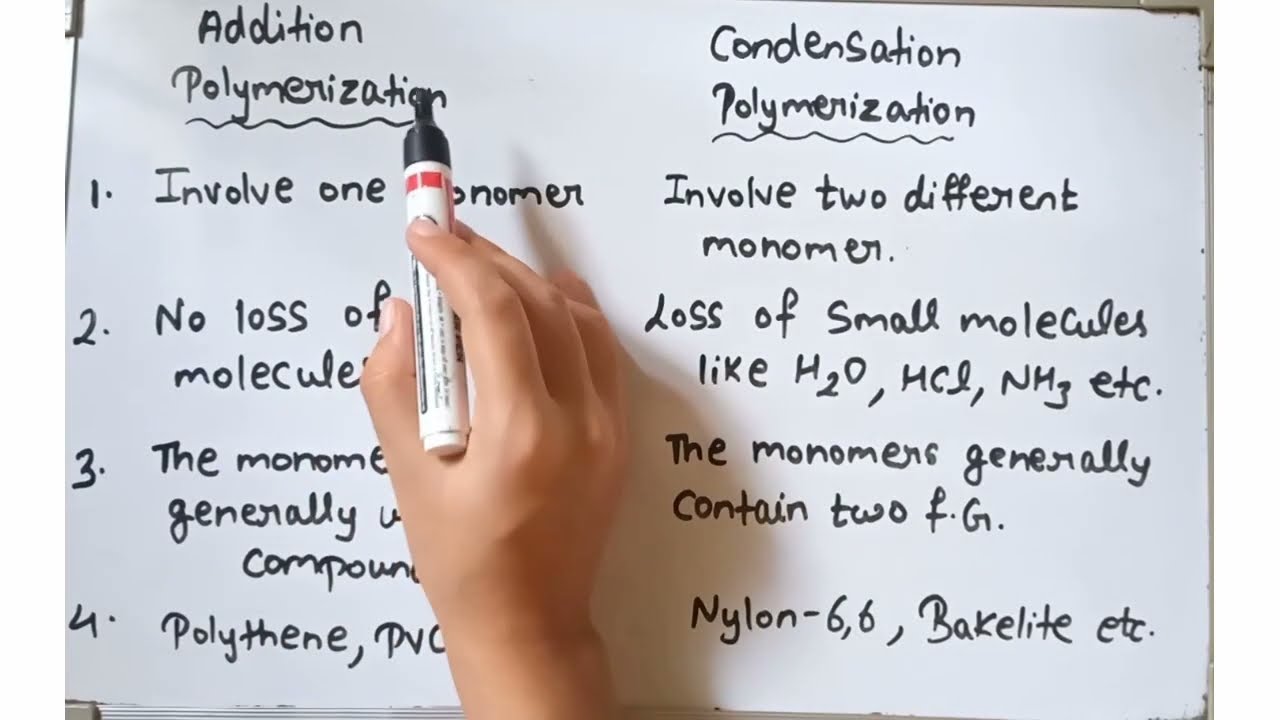 Addition
Polymerization
Condensation
Polymerization
1. Involve one monomer
Involve two different
monomer.
2. No loss of
molecule
Loss of small molecules
like H2O, HCl, NH3 etc.
3. The monome
generally
compoun
The monomers generally
contain two f.G.
4. Polythene, PVC
Nylon-6,6, Bakelite etc.